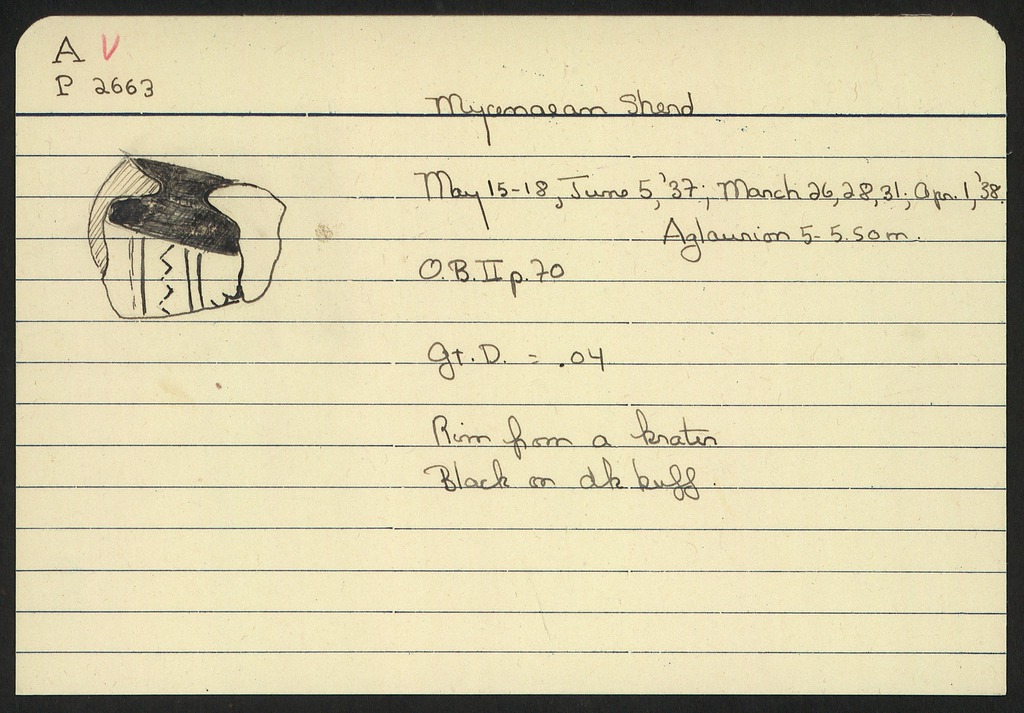 A V
P 2663
Mycenaean Sherd
May 15-18, June 5, '37; March 26, 28, 31; Apr. 1, '38.
Aglaurion 5-5.50m.
O.B. II p. 70
Gt. D. = .04
Rim from a krater
Black on dk buff.